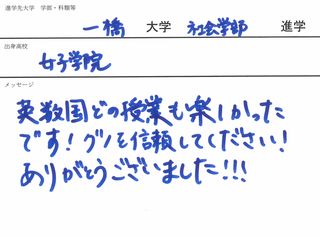 進学先大学 学部・科類等
一橋 大学 社会学部 進学
出身高校
女子学院
メッセージ
英数国どの授業も楽しかった
です！グノを信頼してください！
ありがとうございました！！！